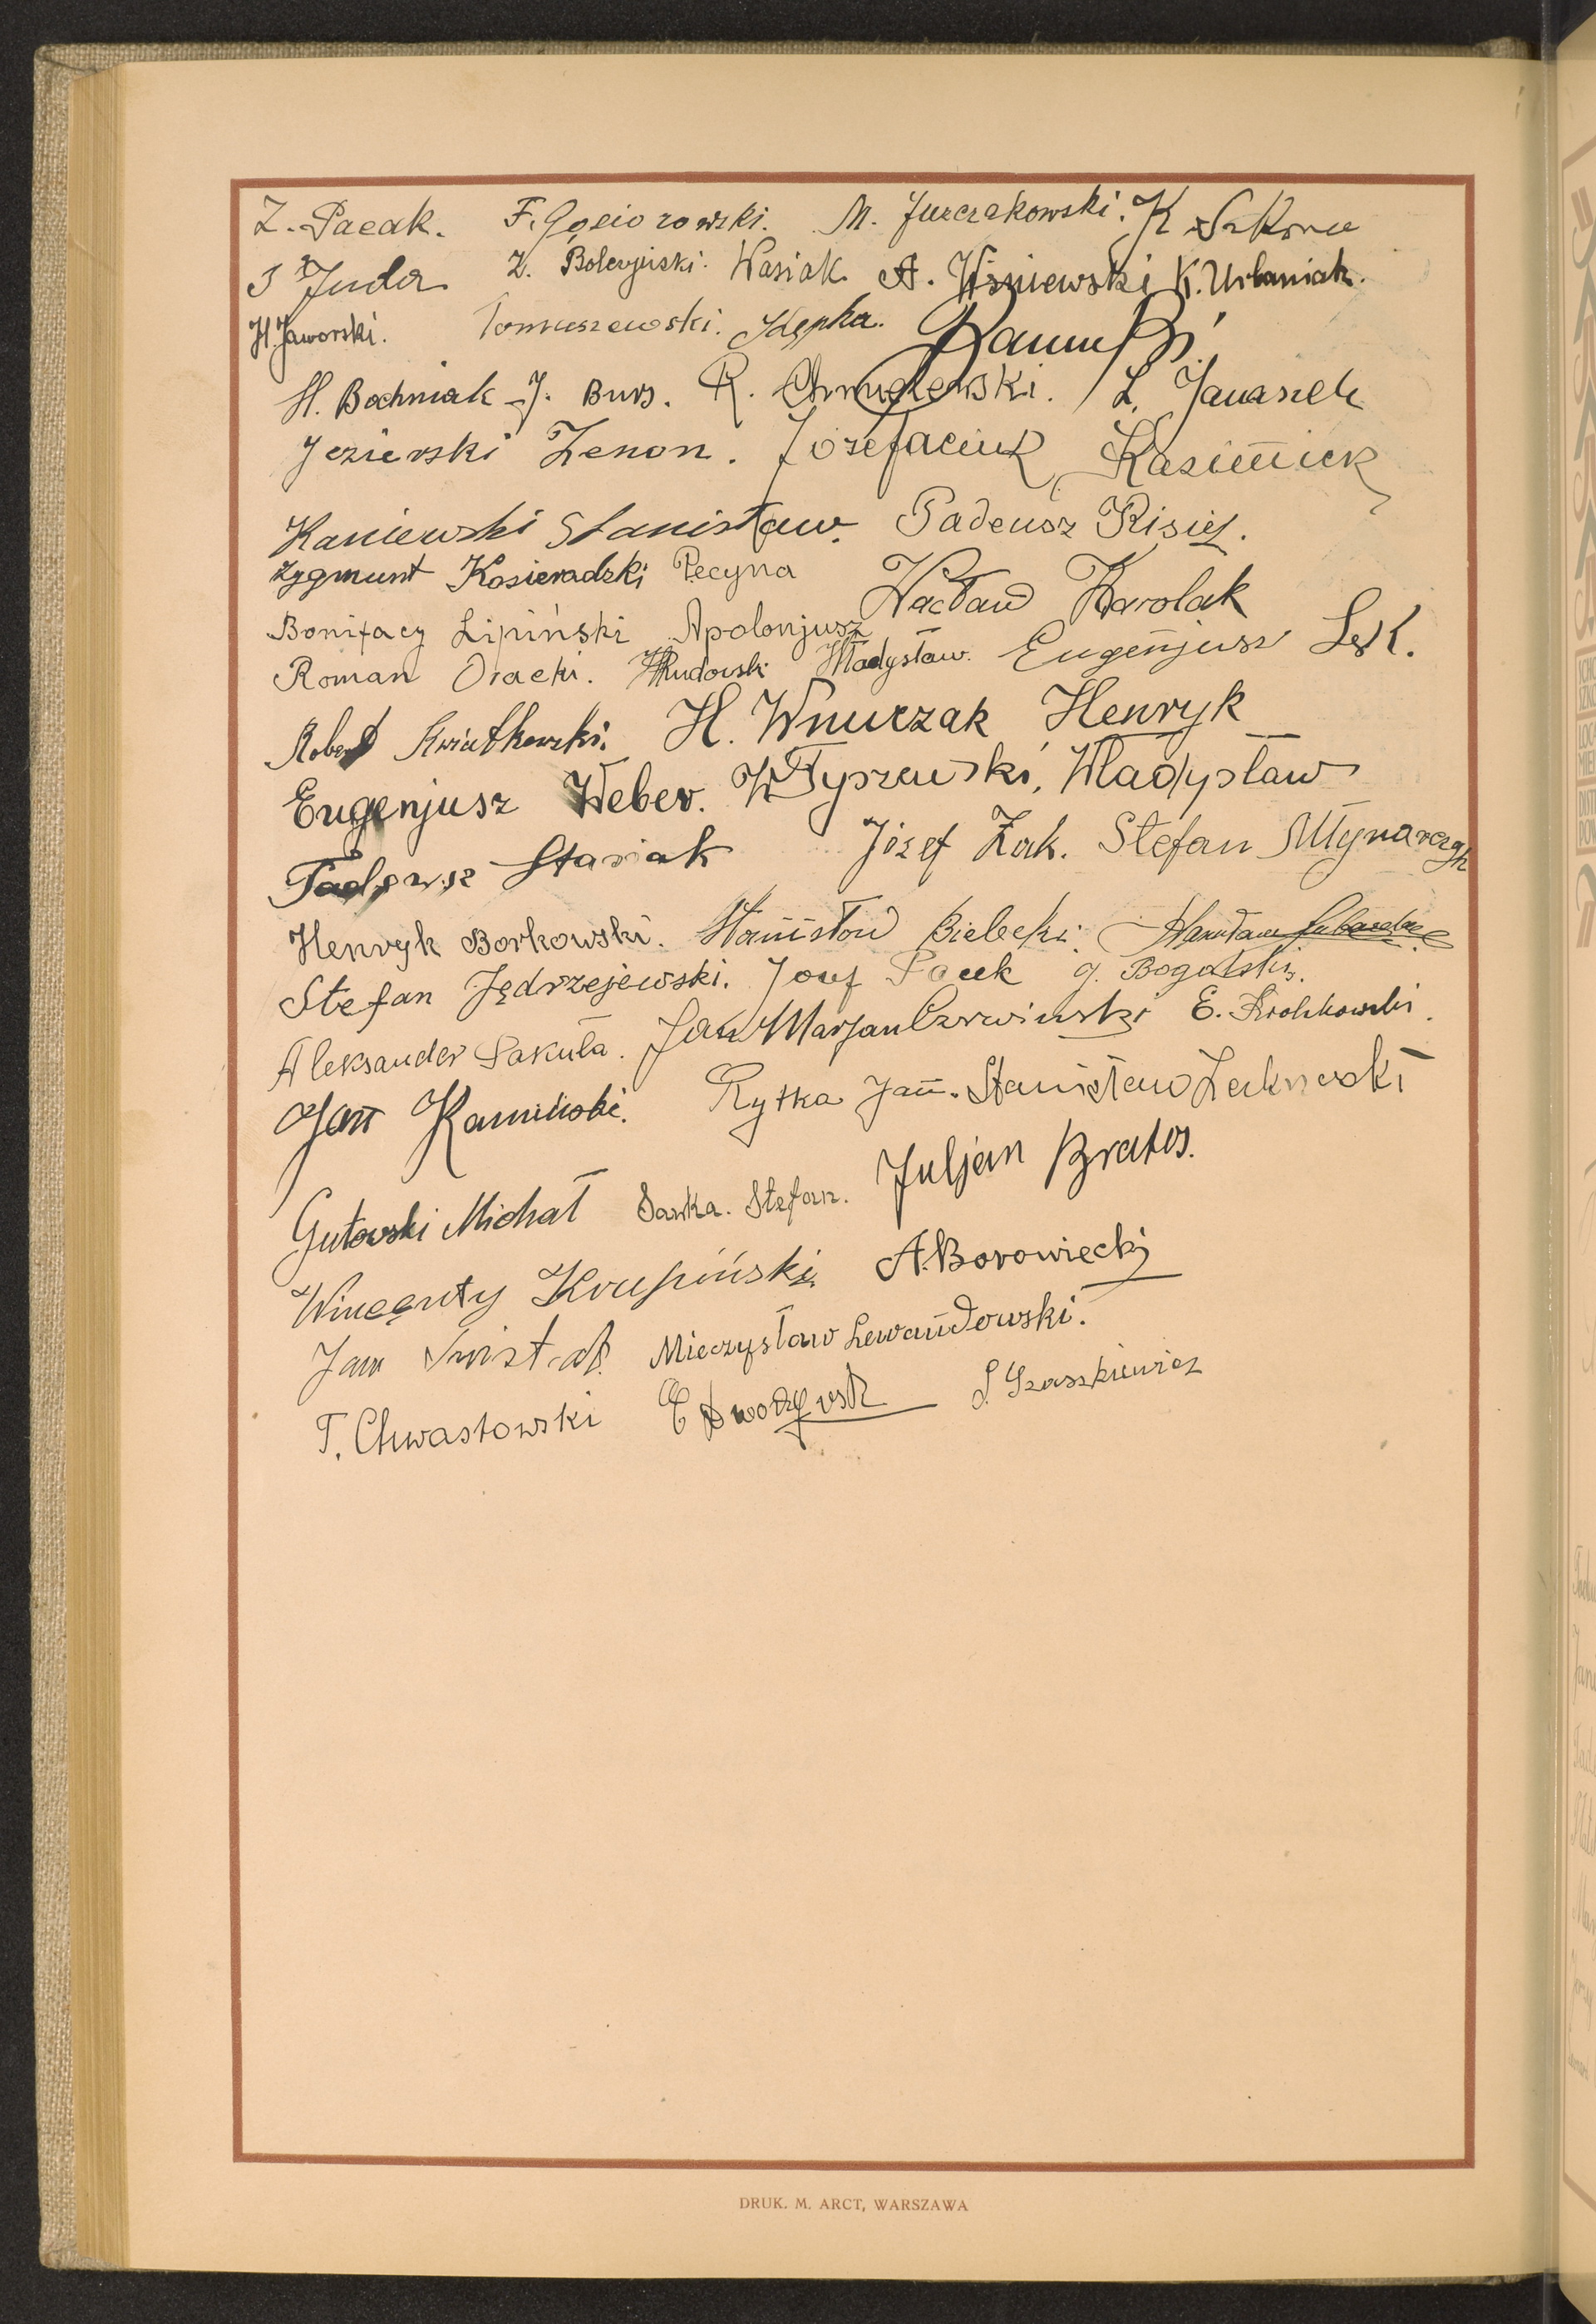 Z. Pacak. F. Gąsiorowski. M. Jurczakowski. K
J Juda Z. Wasiak A. Wiśniewski K. Urbaniak.
H. Jaworski. Tomaszewski. Kępka.
H. Bochniak J. Burs. R. Chmielewski. L. Janaszek
Jezierski Zenon. Józefaciuk Kazimierz
Kaniewski Stanisław. Tadeusz Kisiel.
Zygmunt Kosieradzki Pecyna
Bonifacy Lipiński Apolonjusz Wacław Karolak
Roman Oracki. Rudowski Władysław. Eugenjusz Lęk.
Robert Kwiatkowski. H. Wnurzak Henryk
Eugenjusz Weber. Wyszewski, Władysław
Tadeusz Stasiak Józef Żak. Stefan Młynarczyk
Henryk Borkowski. Stanisław Bielecki.
Stefan Jędrzejewski. Józef Pacek J. Bogatski.
Aleksander Pakuła. Jan Marjan Czerwiński E.
Jan Kamiński. Rytka Jan. Stanisław
Gutowski Michał Sanka. Stefan. Juljan Bratos.
Wincenty Krupiński. A. Borowiecki
Jan Mieczysław Lewandowski.
T. Chwastowski E S. Szaszkiewicz
DRUK. M. ARCT, WARSZAWA